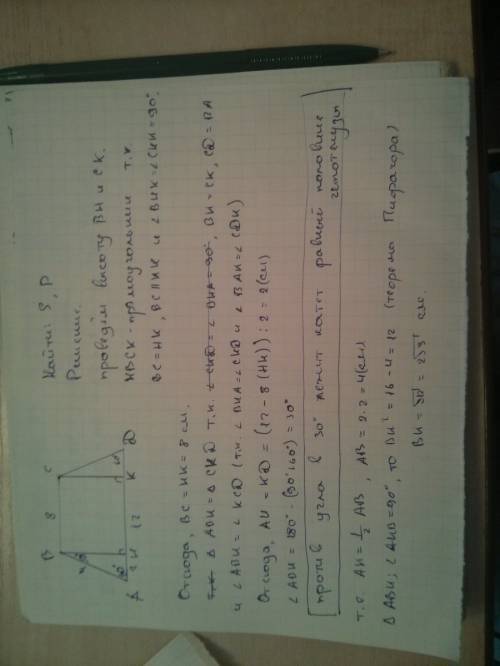 B 8 C
A 2 H 12 K D
Найти: S, P
Решение.
проведём высоту BH и CK.
HBCK - прямоугольник т.к.
BC = HK, BC || HK и ∠BHK = ∠CKH = 90°.
Отсюда, BC = HK = 8 см.
△ABH = △CKD т.к. ∠CKD = ∠BHA = 90°, BH = CK, CD = BA
и ∠ABH = ∠KCD (т.к. ∠BHA = ∠CKD и ∠BAH = ∠CDK)
Отсюда, AH = KD = (12 - 8 (HK)) : 2 = 2 (см)
∠ABH = 180° - (90° + 60°) = 30°
против угла в 30° лежит катет равный половине
гипотенузы
т.е. AH = 1/2 AB, AB = 2·2 = 4 (см)
△ABH; ∠AHB = 90°, то BH² = 16 - 4 = 12 (теорема Пифагора)
BH = √12 = 2√3 см.